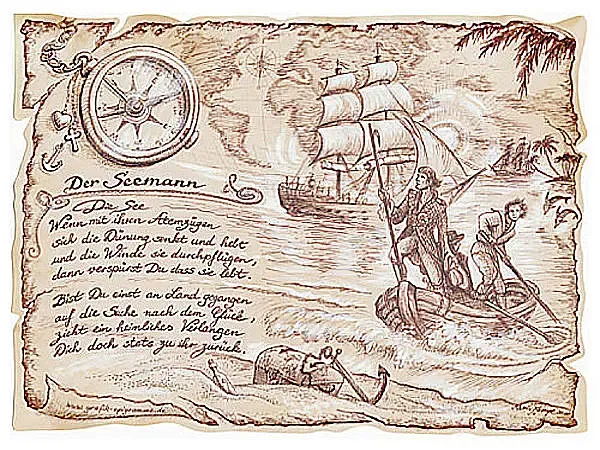 Der Seemann
Die See
Wenn mit ihren Atemzügen
sich die Dünung senkt und hebt
und die Winde sie durchpflügen,
dann verspürst Du dass sie lebt.
Bist Du einst an Land gegangen
auf die Suche nach dem Glück,
zieht ein heimliches Verlangen
Dich doch stets zu ihr zurück.
www.grafik-epigramme.de